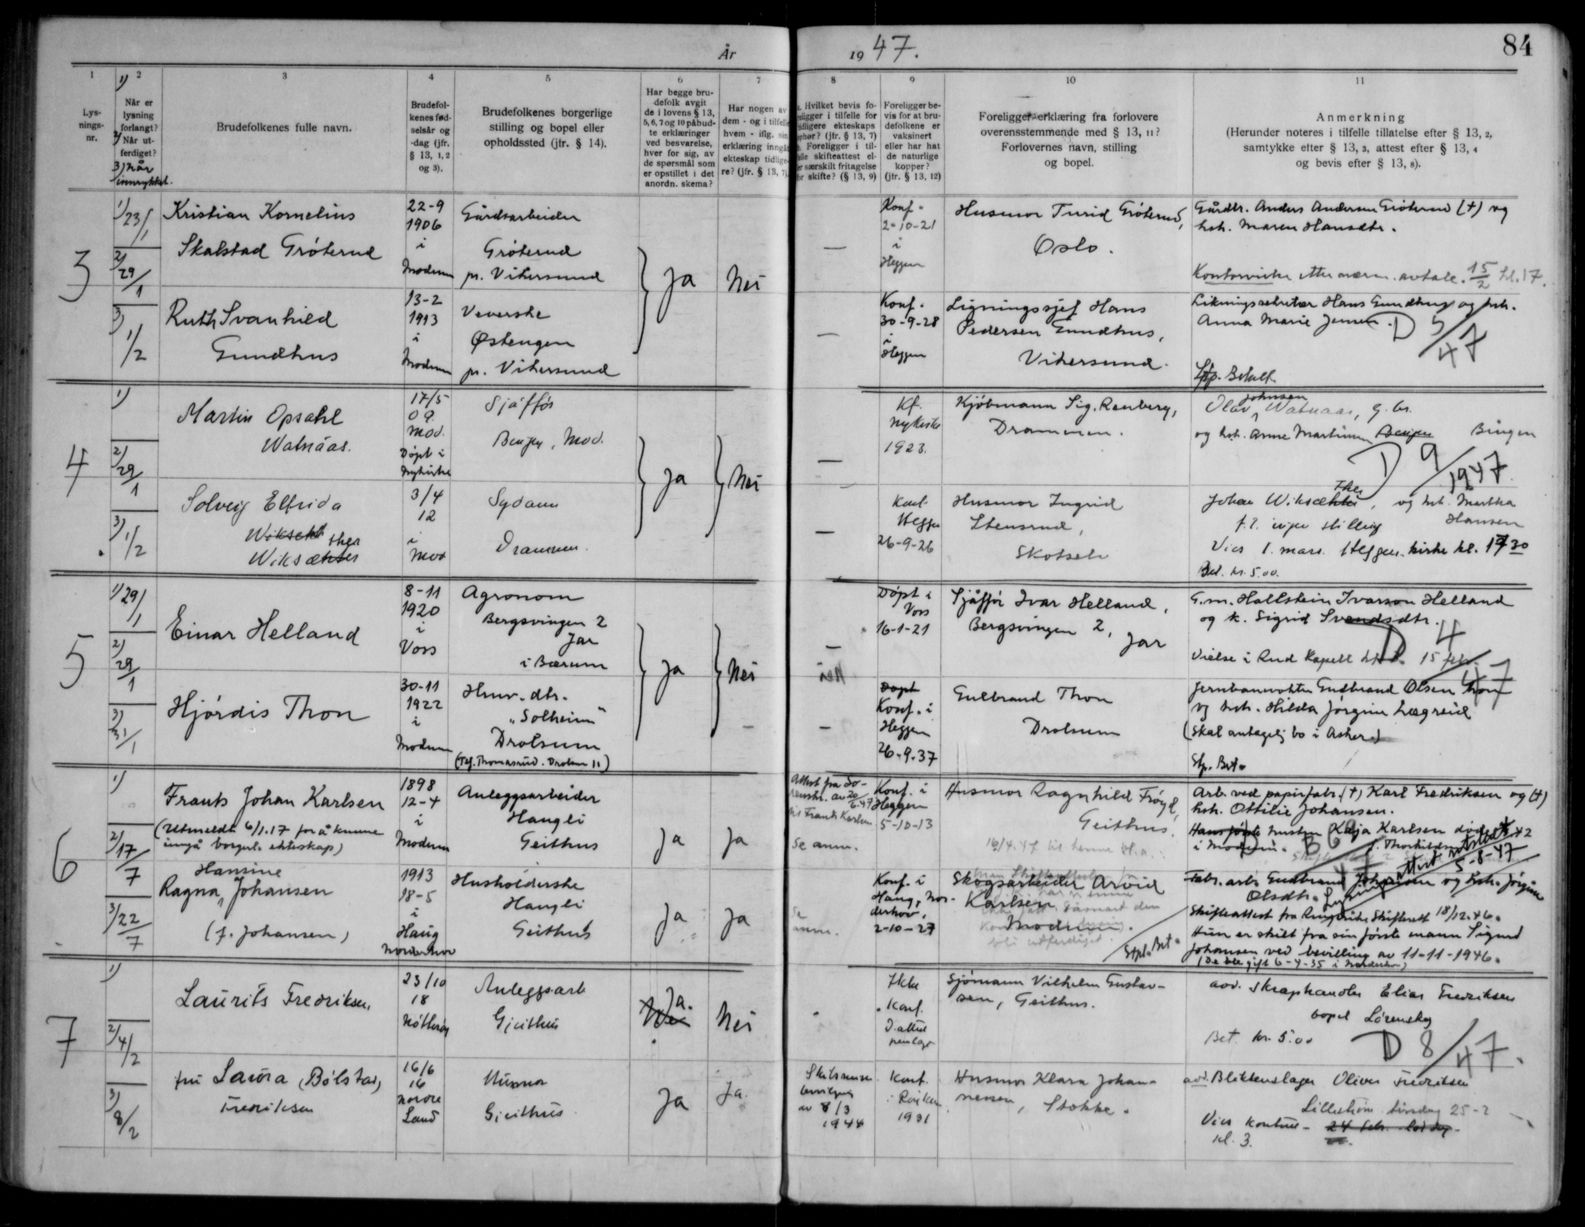 År 1947.
84
1
2
3
4
5
6
7
8
9
10
11
Lys-
nings-
nr.
1) Når er
lysning
forlangt?
2) Når ut-
ferdiget?
3) Når
innrykket.
Brudefolkenes fulle navn.
Brudefol-
kenes fød-
selsår og
-dag (jfr.
§ 13, 1, 2
og 3).
Brudefolkenes borgerlige
stilling og bopel eller
opholdssted (jfr. § 14).
Har begge bru-
defolk avgit
de i lovens § 13,
5, 6, 7 og 10 påbud-
te erklæringer
ved besvarelse,
hver for sig, av
de spørsmål som
er opstillet i det
anordn. skema?
Har nogen av
dem - og i tilfelle
hvem - iflg. sin
erklæring inngått
ekteskap tidlige-
re? (jfr. § 13, 7)
Hvilket bevis fo-
religger i tilfelle for
tidligere ekteskaps
ophør? (jfr. § 13, 7)
Foreligger i til-
felle skifteattest el-
ler særskilt fritagelse
for skifte? (§ 13, 9)
Foreligger be-
vis for at bru-
defolkene er
vaksinert
eller har hat
de naturlige
kopper?
(jfr. § 13, 12)
Foreligger erklæring fra forlovere
overensstemmende med § 13, 11?
Forlovernes navn, stilling
og bopel.
Anmerkning
(Herunder noteres i tilfelle tillatelse efter § 13, 2,
samtykke efter § 13, 3, attest efter § 13, 4
og bevis efter § 13, 8).
3
1) 23/1
2) 29/1
3) 1/2
Kristian Kornelius
Skalstad Grøterud
22-9
1906
i
Modum
Gårdsarbeider
Grøterud
pr. Vikersund
Ja
Nei
—
Konf.
2-10-21
i
Heggen
Husmor Turid Grøterud,
Oslo.
Gårdbr. Anders Andersen Grøterud (+) og
hst. Maren Hansdtr.
15/2 kl. 17.
Ruth Svanhild
Gundhus
13-2
1913
i
Modum
Veverske
Østengen
pr. Vikersund
—
Konf.
30-9-28
i
Heggen
Ligningssjef Hans
Pedersen Gundhus,
Vikersund.
Likningssekretær Hans Gundhus og hst.
Anna Marie Jensen.
D 5/47
Stp. Betalt
4
1)
2) 29/1
3) 1/2
Martin Opsahl
Watnaas.
17/5
09
Mod.
Døpt i
Nykirke
Sjåfør
Bengen, Mod.
Ja
Nei
—
Kf.
Nykirke
1923.
Kjøbmann Sig. Renberg,
Drammen.
Olav Johnsen Watnaas, g.br.
og hst. Anne Martinsen Bingen
D 9/1947
Solveig Elfrida
Wiksæther
3/4
12
i
Mod
Sydame
Drammen.
—
Konf.
Heggen
26-9-26
Husmor Ingrid
Stensrud,
Skotselv
Johan Wiksæther, og hst. Martha
Hansen
f.t. ingen stilling
Vies 1. mars Heggen kirke kl. 1730
Bet. kr. 5.00.
5
1) 29/1
2) 29/1
3) 31/1
Einar Helland
8-11
1920
i
Voss
Agronom
Bergsvingen 2
Jar
i Bærum
Ja
Nei
—
Døpt i
Voss
16-1-21
Sjåfør Ivar Helland,
Bergsvingen 2, Jar
G.m. Hallstein Ivarson Helland
og k. Sigrid Svendsdtr.
D 4/47
Vielse i Rud Kapell 15 febr.
Hjørdis Thon
30-11
1922
i
Modum
Hmv. dtr.
"Solheim"
Drolsum
(Tlf. Thomasrud. Drolsum 11)
—
—
Døpt
Konf. i
Heggen
26-9-37
Gulbrand Thon
Drolsum
Jernbanevokter Gudbrand Olsen Thon
og hst. Hilda Jørgine Lægreid
(Skal antagelig bo i Asker.)
Stp. Bet.
6
1)
2) 17/7
3) 22/7
Frants Johan Karlsen
(Utmeldt 6/1.17 for å kunne
inngå borgerl. ekteskap)
1898
12-4
i
Modum
Anleggsarbeider
Haugli
Geithus
Ja
Ja
Se anm.
Konf. i
Heggen
5-10-13
Husmor Ragnhild Frøyd,
Geithus.
Arb. ved papirfabr. (+) Karl Fredriksen og (+)
hst. Ottilie Johansen.
Kaja Karlsen
i Modum.
5-8-47
Ragna Hansine Johansen
(f. Johansen)
1913
18-5
i
Haug
Norderhov
Husholderske
Haugli
Geithus
Ja
Ja
Se
anm.
Konf. i
Haug, Nor-
derhov,
2-10-27
Skogsarbeider Arvid
Karlsen
Modum.
Stpl. Bet.
Fabr. arb. Gudbrand Johansen og hst. Jørgine
Olsdtr.
Skifteattest fra Ringerike Skifterett 18/12.46.
Hun er skilt fra sin første mann Sigurd
Johansen ved bevilling av 11-11-1946.
(De ble gift 6-4-35 i Norderhov)
7
1)
2) 4/2
3) 8/2
Laurits Fredriksen,
23/10
18
Nøtterøy
Anleggsarb
Geithus
Ja.
Nei
Nei
Ikke
Konf.
Sjømann Vilhelm Gustav-
sen, Geithus.
avd. skraphandler Elias Fredriksen
bopel Lørenskog
Bet. kr. 5.00
D 8/47.
fru Laura (Bølstad)
Fredriksen
16/6
16
Nordre
Land
Husmor
Geithus
Ja
Ja.
Skilsmisse
bevilling
av 8/3
1944
Konf.
i Røiken
1931
Husmor Klara Johan-
nessen, Stokke.
avd. Blikkenslager Oliver Fredriksen
Lillestrøm tirsdag 25-2
Vies kontoret 24 febr.
kl. 3.